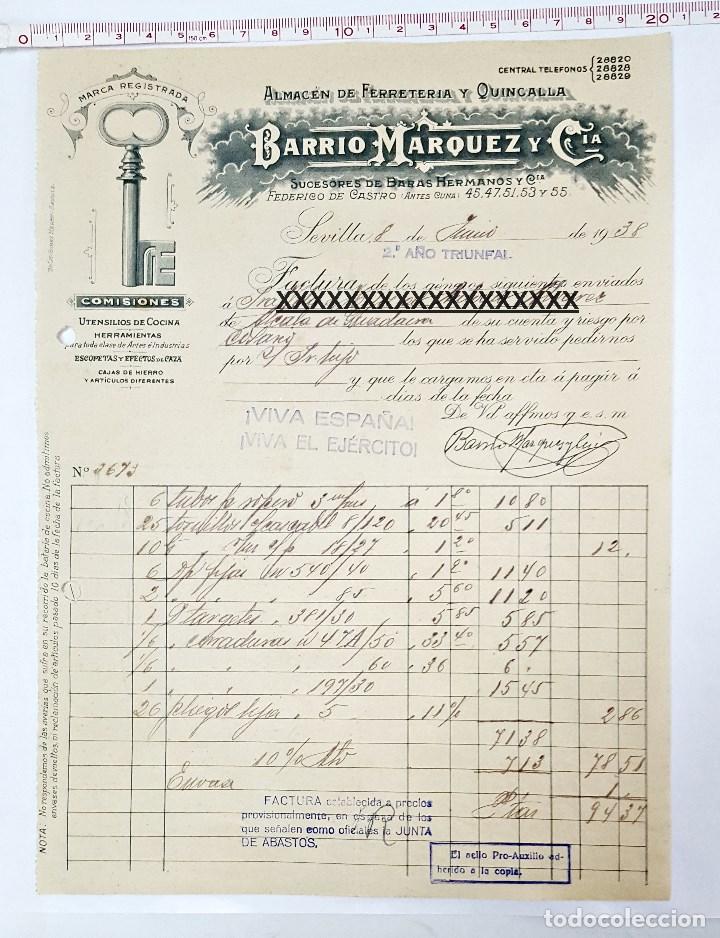 0 5 150 cm 10 15 20
CENTRAL TELEFONOS { 28820
28828
28829
MARCA REGISTRADA
ALMACÉN DE FERRETERIA Y QUINCALLA
BARRIO MARQUEZ Y CIA
SUCESORES DE BARAS HERMANOS Y Cia
FEDERICO DE CASTRO (ANTES CUNA) 45.47.51.53 Y 55.
Sevilla 8 de Junio de 1938
2.º AÑO TRIUNFAL
Factura de los géneros siguientes enviados
á XXXXXXXXXXXXXXXXXXX
de Alcala de Guadaira de su cuenta y riesgo por
los que se ha servido pedirnos
por
y que le cargamos en cta á pagar á
días de la fecha
De Vd. affmos q.e.s.m
Barrio Marquez y Cia
COMISIONES
UTENSILIOS DE COCINA
HERRAMIENTAS
para toda clase de Artes é Industrias
ESCOPETAS Y EFECTOS DE CAZA
CAJAS DE HIERRO
Y ARTÍCULOS DIFERENTES
¡VIVA ESPAÑA!
¡VIVA EL EJÉRCITO!
Nº 2673
6 tubos á 1 80 10 80
25 tornillos 8/120 20 45 5 11
10 18/27 1 20 12.
6 540/40 1 90 11 40
2 " " 85 5 60 11 20
1 targetes 381/30 5 85 5 85
1/6 cerraduras 47A/50 33 40 5 57
1/6 " " 60 36 6 "
1 " " 197/30 15 45
26 pliegos lija 5 11% 2 86
71 38
10% Dto 7 13 78 51
Envase 1.
Ptas 94 37
FACTURA establecida a precios
provisionalmente, en espera de los
que señalen como oficiales la JUNTA
DE ABASTOS.
El sello Pro-Auxilio ad-
herido a la copia.
NOTA: No respondemos de las averias que sufra en su recorrido la batería de cocina. No admitimos
envases devueltos, ni reclamación de artículos pasado 10 días de la fecha de la factura
todocoleccion.net